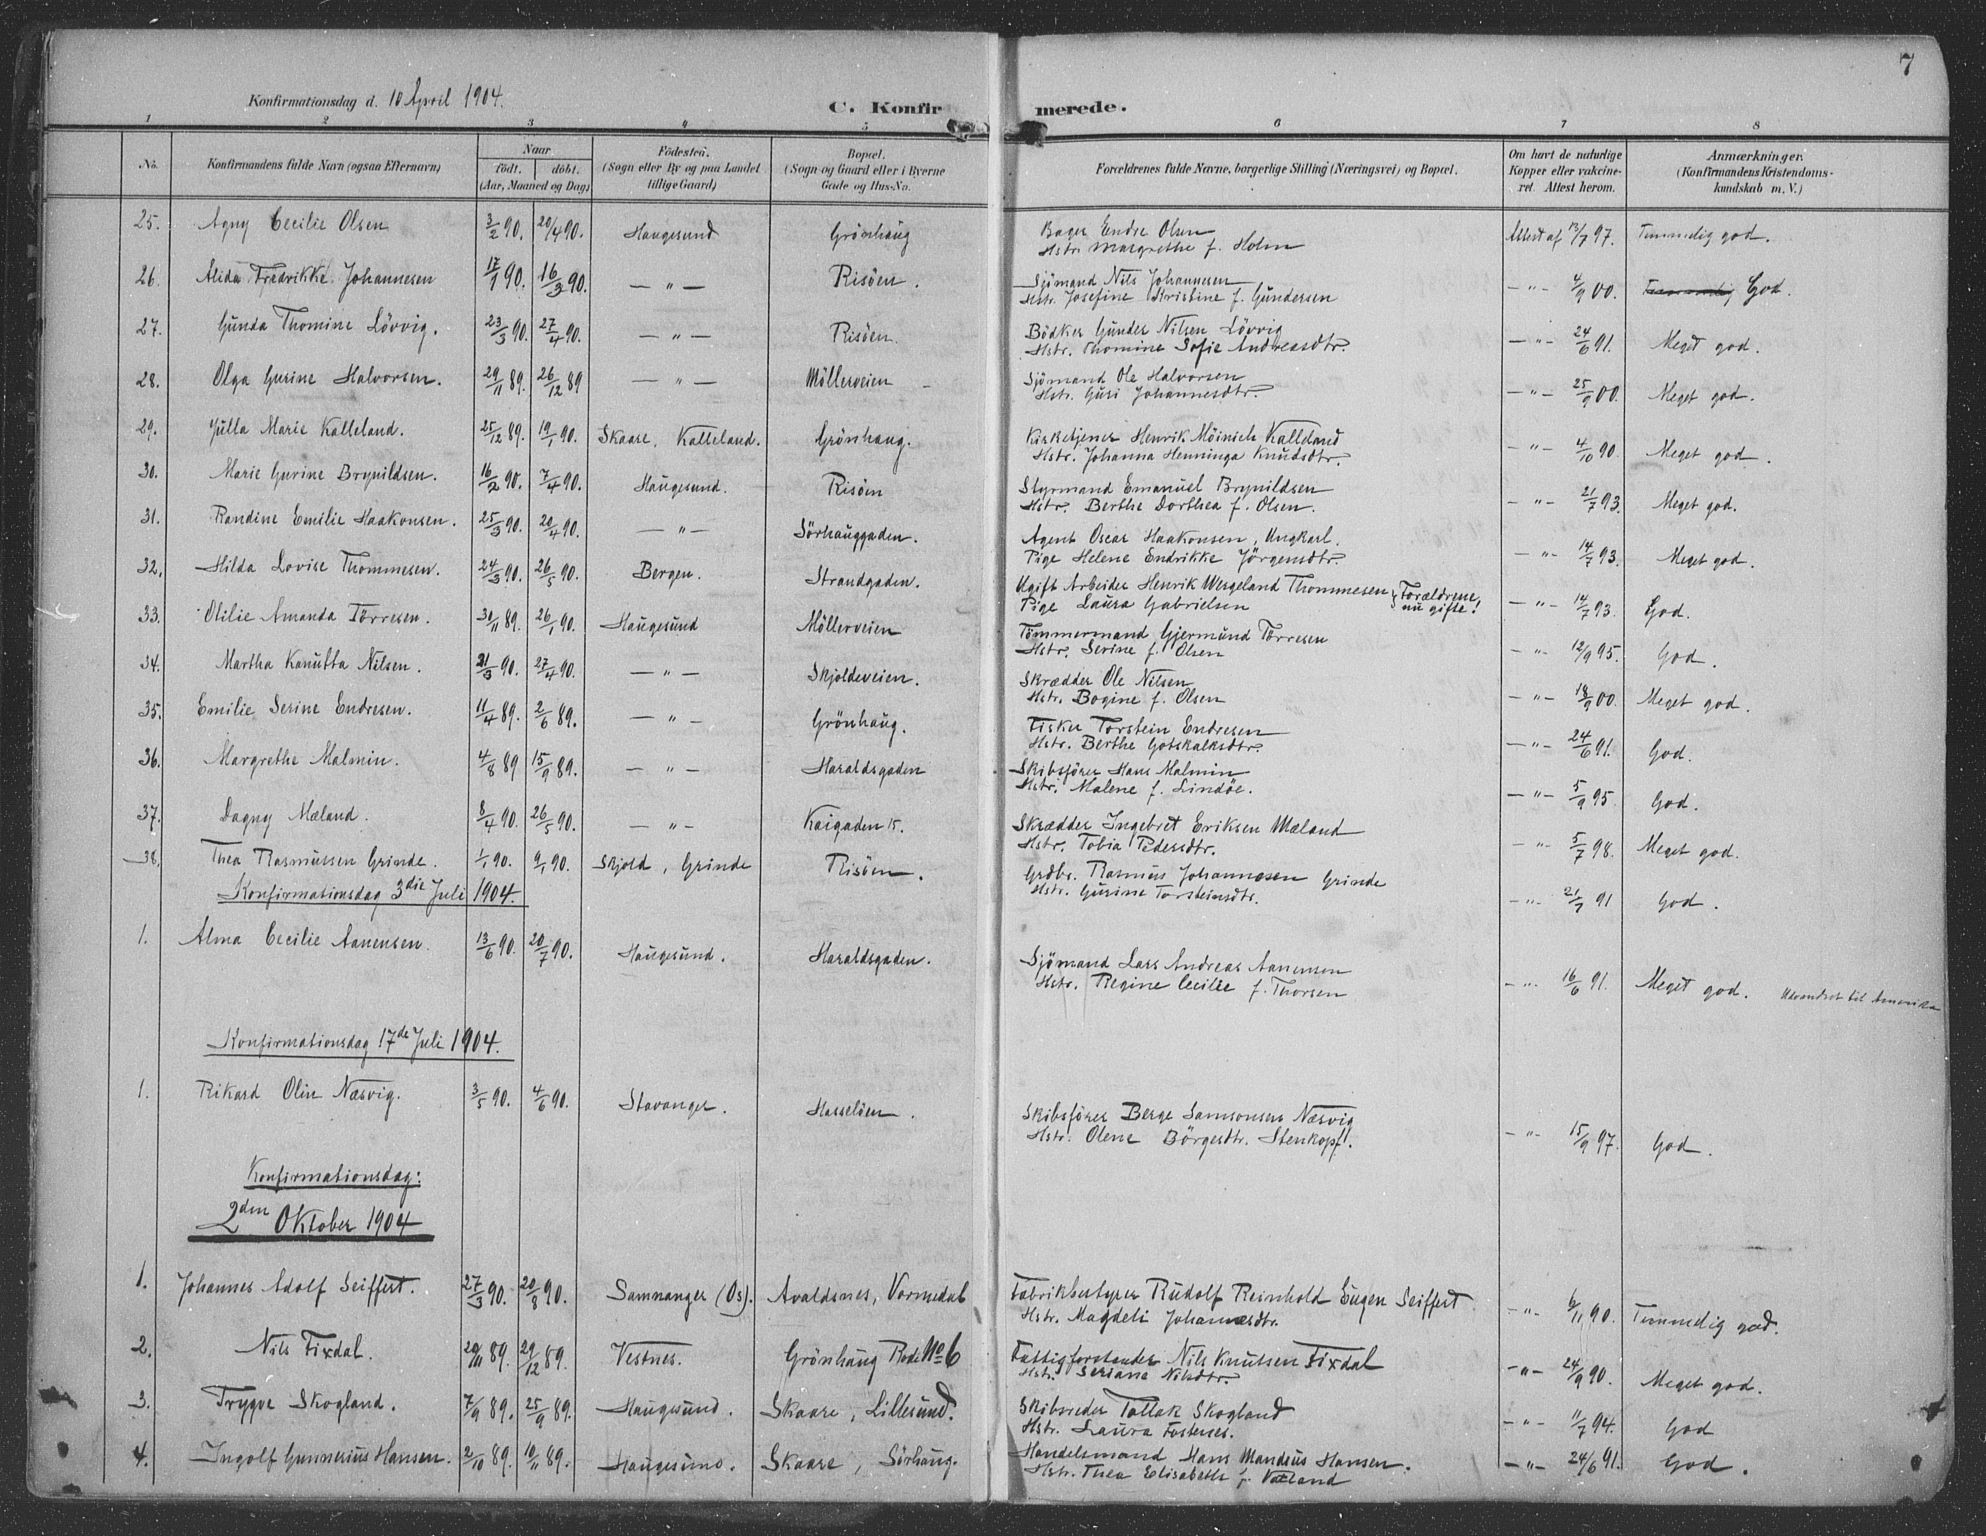 7
Konfirmationsdag d. 10 April 1904.
C. Konfirmerede.
1 2 3 4 5 6 7 8
No. Konfirmandens fulde Navn (ogsaa Efternavn) Naar født. døbt. (Aar, Maaned og Dag) Fødested. (Sogn eller By og paa Landet tillige Gaard) Bopæl. (Sogn og Gaard eller i Byerne Gade og Hus-No. Forældrenes fulde Navne, borgerlige Stilling (Næringsvei) og Bopæl. Om havt de naturlige Kopper eller vakcineret. Attest herom. Anmærkninger. (Konfirmandens Kristendomskundskab m. V.)
25. Agny Cecilie Olsen 3/2 90. 20/4 90. Haugesund Grönhaug Bager Endre Olsen Attest af 13/7 97. Temmelig god.
Hstr. Margrethe f. Holm
26. Alida Fredrikke Johannesen 17/1 90. 16/3 90. — " — Risöen. Sjömand Nils Johannesen — " — 4/9 00. Temmelig God.
Hstr. Josefine Kristine f. Gundersen
27. Gunda Thomine Lövvig. 23/3 90. 27/4 90. — " — Risöen. Bödker Gunder Nilsen Lövvig — " — 24/6 91. Meget god.
Hstr. Thomine Sofie Andreasdtr.
28. Olga Gurine Halvorsen. 29/11 89. 26/12 89 — " — Möllerveien Sjömand Ole Halvorsen — " — 25/9 00. Meget god.
Hstr. Guri Johannesdtr.
29. Jutta Marie Kalleland. 25/12 89. 19/1 90. Skaare, Kalleland. Grönhaug. Kirketjener Henrik Möinich Kalleland — " — 4/10 90. Meget god.
Hstr. Johanna Henninga Knudsdtr.
30. Marie Gurine Brynildsen. 16/2 90. 7/4 90. Haugesund. Risöen Styrmand Emanuel Brynildsen — " — 21/7 93. Meget god.
Hstr. Berthe Dorthea f. Olsen.
31. Randine Emilie Haakonsen. 25/3 90. 20/4 90. — " — Sörhauggaden. Agent Oscar Haakonsen, Ungkarl. — " — 14/7 93. Meget god.
Pige Helene Endrikke Jörgensdtr.
32. Hilda Lovise Thommesen. 24/3 90. 26/5 90. Bergen. Strandgaden. Ugift Arbeider Henrik Wergeland Thommesen } Forældrene nu gifte! — " — 14/7 93. God.
Pige Laura Gabrielsen
33. Otilie Amanda Törresen. 30/11 89. 26/1 90. Haugesund Möllerveien Tömmermand Gjermund Törresen — " — 12/9 95. God.
Hstr. Serine f. Olsen
34. Martha Knutta Nilsen. 21/3 90. 27/4 90. — " — Skjoldeveien. Skrædder Ole Nilsen — " — 18/9 00. Meget god.
Hstr. Bogine f. Olsen
35. Emilie Serine Endresen. 11/4 89. 2/6 89. — " — Grönhaug. Fisker Torstein Endresen — " — 24/6 91. God.
Hstr. Berthe Gotskalksdtr.
36. Margrethe Malmin. 4/8 89 15/9 89. — " — Haraldsgaden Skibsförer Hans Malmin — " — 5/9 95. God.
Hstr. Malene f. Lindöe.
37. Dagny Mæland. 8/4 90. 26/5 90. — " — Kaigaden 15. Skrædder Ingebret Eriksen Mæland — " — 5/7 98. Meget god.
Hstr. Tobia Pedersdtr.
38. Thea Rasmussen Grinde. 1/1 90. 9/1 90. Skjold, Grinde Risöen. Grdbr. Rasmus Johannesen Grinde — " — 21/7 91 God.
Hstr. Gurine Torsteinsdtr.
Konfirmationsdag 3die Juli 1904.
1. Alma Cecilie Aanensen. 13/6 90. 20/7 90. Haugesund. Haraldsgaden. Sjömand Lars Andreas Aanensen — " — 16/6 91. Meget god. Udvandret til Amerika
Hstr. Regine Cecilie f. Thorsen
Konfirmationsdag 17de Juli 1904.
1. Rikard Olin Næsvig. 3/5 90. 4/6 90. Stavanger. Hasselöen. Skibsförer Berge Samsonsen Næsvig — " — 15/9 97. God.
Hstr. Olene Börgesdtr. Stenkopf.
Konfirmationsdag:
2den Oktober 1904
1. Johannes Adolf Seiffert. 27/3 90. 20/8 90. Samnanger (Os). Avaldsnes, Vormedal Fabrikbestyrer Rudolf Reinhold Eugen Seiffert — " — 6/11 90. Temmelig god.
Hstr. Magdeli Johannesdtr.
2. Nils Fixdal. 20/11 89. 29/12 89. Vestnes. Grönhaug Rode No 6 Fattigforstander Nils Knutsen Fixdal — " — 24/9 90. Meget god.
Hstr. Seriane Nilsdtr.
3. Trygve Skogland. 7/9 89. 25/9 89. Haugesund. Skaare, Lillesund. Skibsreder Tallak Skogland — " — 11/7 94. God
Hstr. Laura Fostenes.
4. Ingolf Gunnerius Hansen. 2/10 89. 10/11 89. Haugesund. Skaare, Sörhaug. Handelsmand Hans Mandeus Hansen. — " — 24/6 91. God.
Hstr. Thea Elisabeth f. Valand